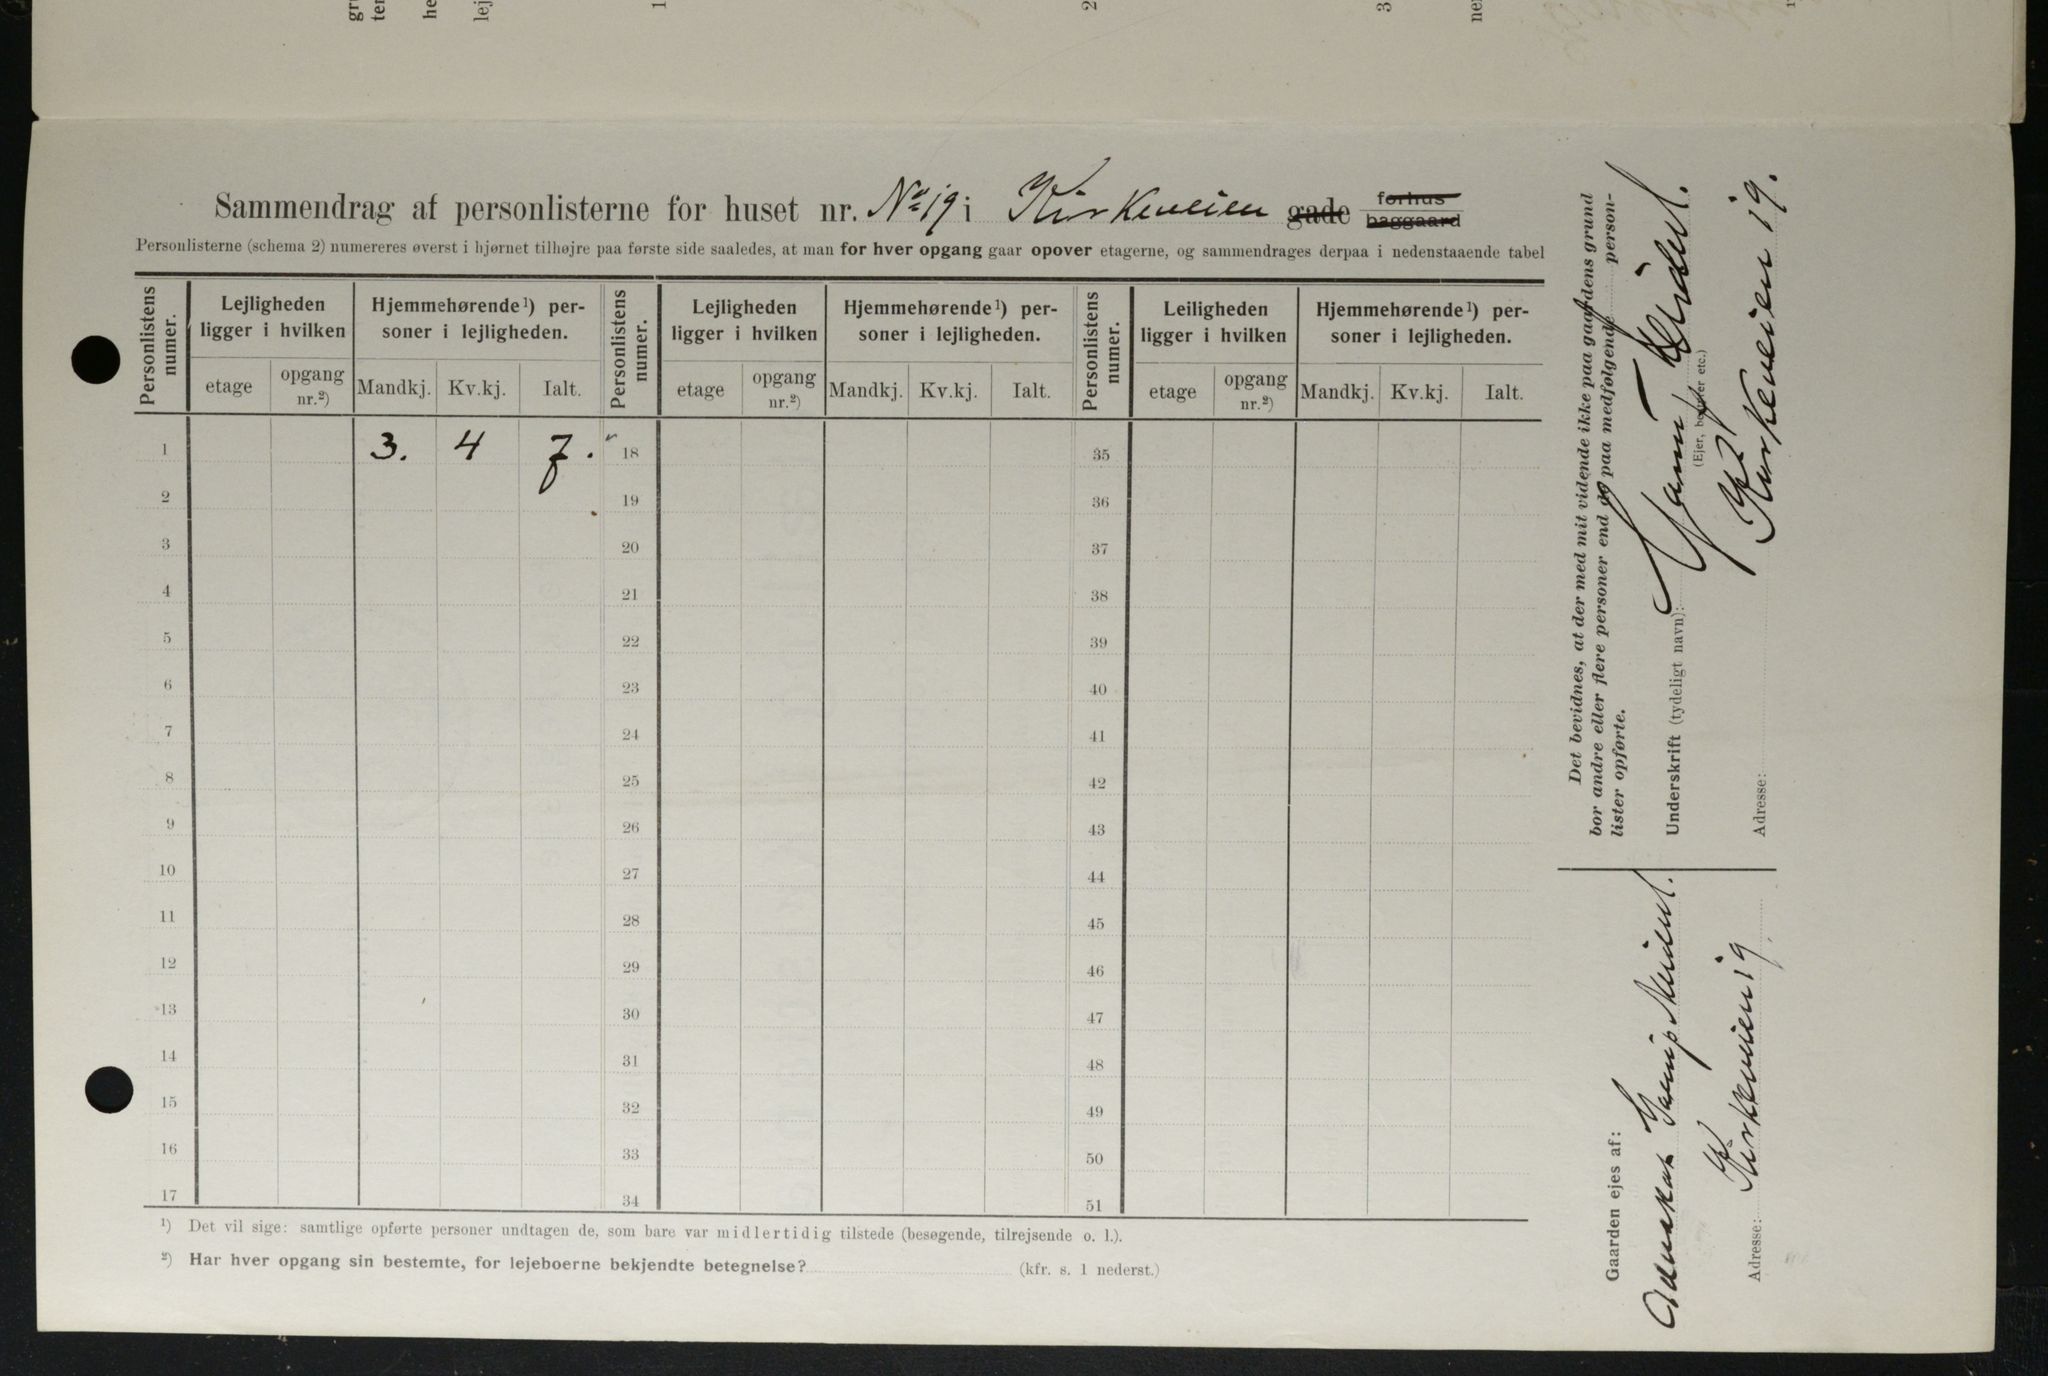 Sammendrag af personlisterne for huset nr. No 19 i Kirkeveien gade forhus baggaard
Personlisterne (schema 2) numereres øverst i hjørnet tilhøjre paa første side saaledes, at man for hver opgang gaar opover etagerne, og sammendrages derpaa i nedenstaaende tabel
Personlistens numer. Lejligheden ligger i hvilken Hjemmehørende ¹) personer i lejligheden. Personlistens numer. Lejligheden ligger i hvilken Hjemmehørende ¹) personer i lejligheden. Personlistens numer. Leiligheden ligger i hvilken Hjemmehørende ¹) personer i lejligheden.
etage opgang nr.²) Mandkj. Kv.kj. Ialt. etage opgang nr.²) Mandkj. Kv.kj. Ialt. etage opgang nr.²) Mandkj. Kv.kj. Ialt.
1 3. 4 7. 18 35
2 19 36
3 20 37
4 21 38
5 22 39
6 23 40
7 24 41
8 25 42
9 26 43
10 27 44
11 28 45
12 29 46
13 30 47
14 31 48
15 32 49
16 33 50
17 34 51
¹) Det vil sige: samtlige opførte personer undtagen de, som bare var midlertidig tilstede (besøgende, tilrejsende o. l.).
²) Har hver opgang sin bestemte, for lejeboerne bekjendte betegnelse? (kfr. s. 1 nederst.)
Det bevidnes, at der med mit vidende ikke paa gaardens grund
bor andre eller flere personer end de paa medfølgende personlister opførte.
Underskrift (tydeligt navn):
(Ejer, bestyrer etc.)
Adresse: Kirkeveien 19.
Gaarden ejes af:
Adresse: Kirkeveien 19